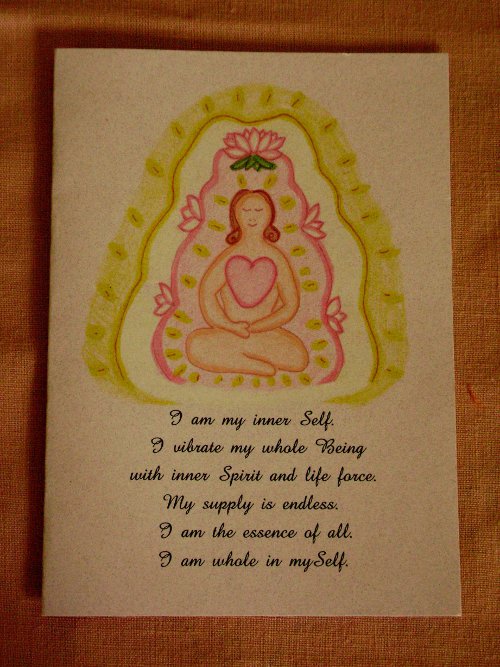 I am my inner Self.
I vibrate my whole Being
with inner Spirit and life force.
My supply is endless.
I am the essence of all.
I am whole in mySelf.